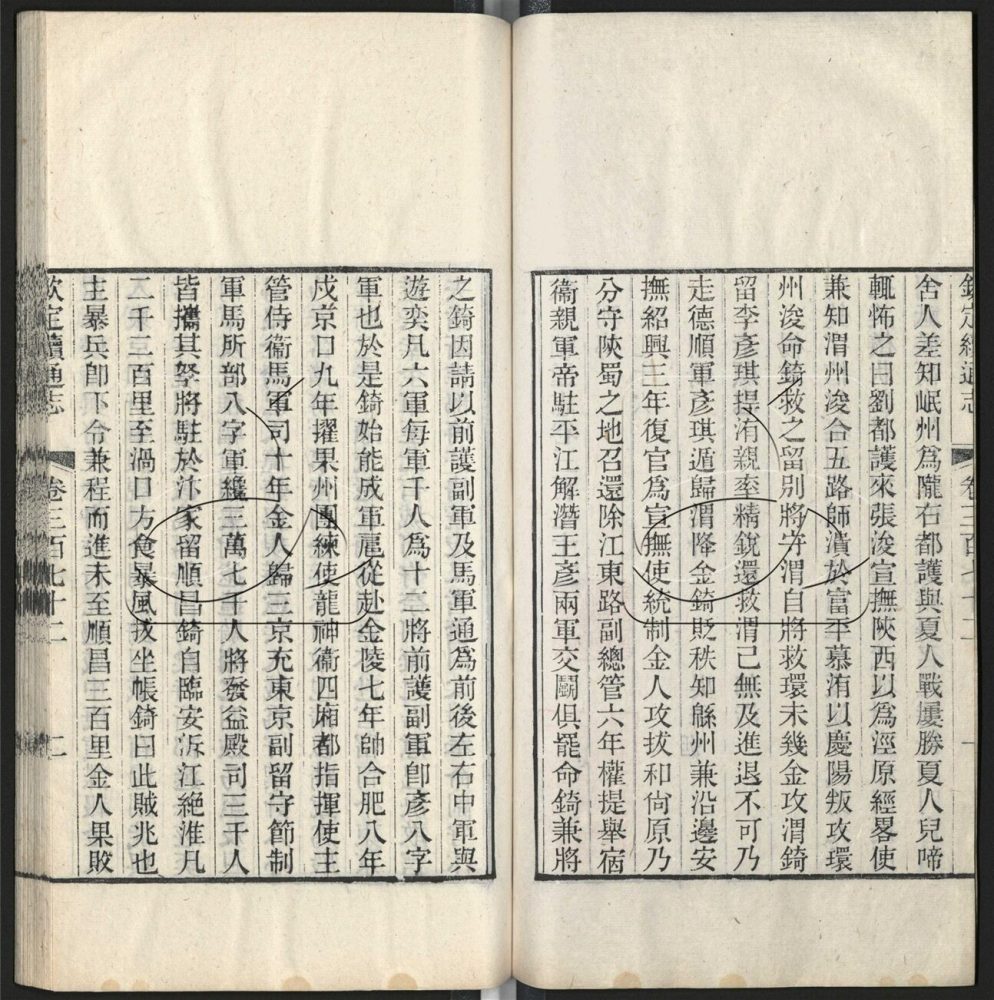 欽定續通志 卷三百七十二 一
舍人差知岷州爲隴右都護與夏人戰屢勝夏人兒啼
輒怖之曰劉都護來張浚宣撫陝西以爲涇原經畧使
兼知渭州浚合五路師潰於富平慕洧以慶陽叛攻環
州浚命錡救之留別將守渭自將救環未幾金攻渭錡
留李彥琪捍洧親率精銳還救渭已無及進退不可乃
走德順軍彥琪遁歸渭降金錡貶秩知緜州兼沿邊安
撫紹興三年復官爲宣撫使統制金人攻拔和尙原乃
分守陝蜀之地召還除江東路副總管六年權提舉宿
衞親軍帝駐平江解潛王彥兩軍交鬭俱罷命錡兼將
之錡因請以前護副軍及馬軍通爲前後左右中軍與
遊奕凡六軍每軍千人爲十二將前護副軍卽彥八字
軍也於是錡始能成軍扈從赴金陵七年帥合肥八年
戍京口九年擢果州團練使龍神衞四廂都指揮使主
管侍衞馬軍司十年金人歸三京充東京副留守節制
軍馬所部八字軍纔三萬七千人將發益殿司三千人
皆攜其孥將駐於汴家留順昌錡自臨安泝江絕淮凡
二千二百里至渦口方食暴風拔坐帳錡曰此賊兆也
主暴兵卽下令兼程而進未至順昌三百里金人果敗
欽定續通志 卷三百七十二 二